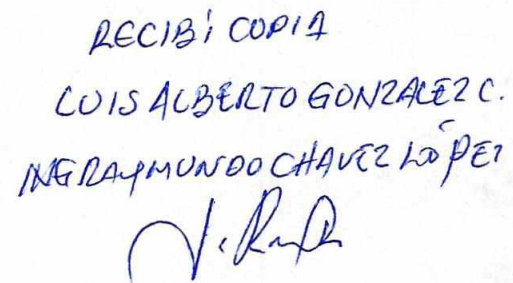 RECIBÍ COPIA
LUIS ALBERTO GONZALEZ C.
ING RAYMUNDO CHAVEZ LÓPEZ